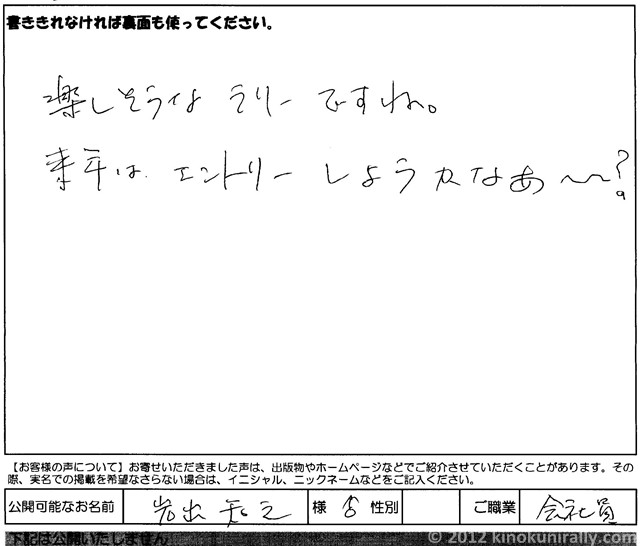 書ききれなければ裏面も使ってください。
楽しそうな ラリー ですね。
来年は エントリー しようかなあ〜〜?
【お客様の声について】お寄せいただきました声は、出版物やホームページなどでご紹介させていただくことがあります。その
際、実名での掲載を希望なさらない場合は、イニシャル、ニックネームなどをご記入ください。
公開可能なお名前 岩出 之 様 性別 ご職業 会社員
下記は公開いたしません
© 2012 kinokunirally.com